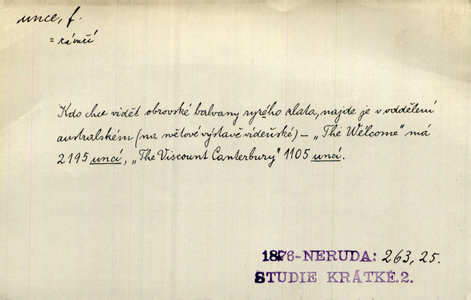 unce, f.
= závaží
Kdo chce vidět obrovské balvany ryzého zlata, najde je v oddělení
australském (na světové výstavě vídeňské) – „The Welcome" má
2195 uncí, „The Viscount Canterbury" 1105 uncí.
1876-NERUDA: 263, 25.
STUDIE KRÁTKÉ.2.